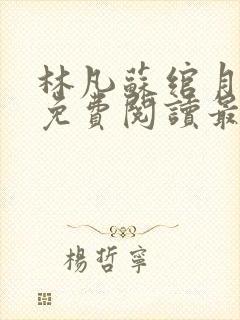 林凡蘇綰月
免費閱讀最
楊哲寧